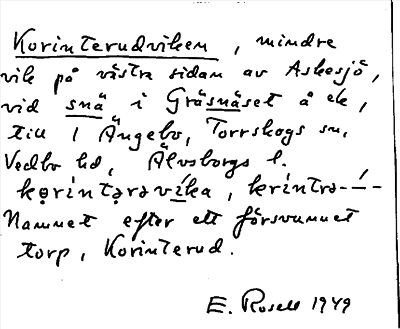 Korinterudviken, mindre
vik på västra sidan av Askesjö,
vid snä i Gräsnäset å ek,
till 1 Ängebo, Torrskogs sn,
Vedbo hd, Älvsborgs l.
kǫrintərəvíka, krintrə-‐́-
Namnet efter ett försvunnet
torp, Korinterud.
E. Rosell 1949